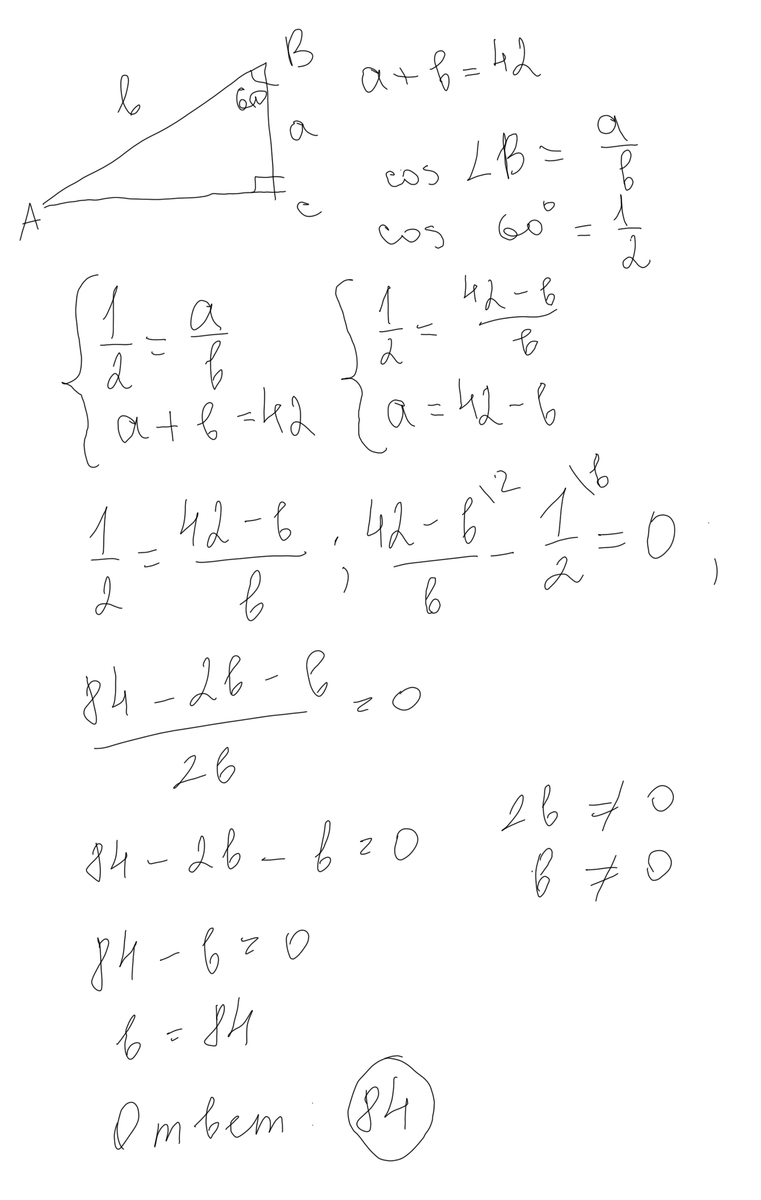 B
b 60 a
A C
a + b = 42
cos ∠B = a/b
cos 60° = 1/2
{ 1/2 = a/b { 1/2 = (42 - b)/b
a + b = 42 a = 42 - b
1/2 = (42 - b)/b ; (42 - b)/b \2 - 1/2 \b = 0 ;
(84 - 2b - b)/2b = 0
84 - 2b - b = 0 2b ≠ 0
b ≠ 0
84 - b = 0
b = 84
Ответ: 84